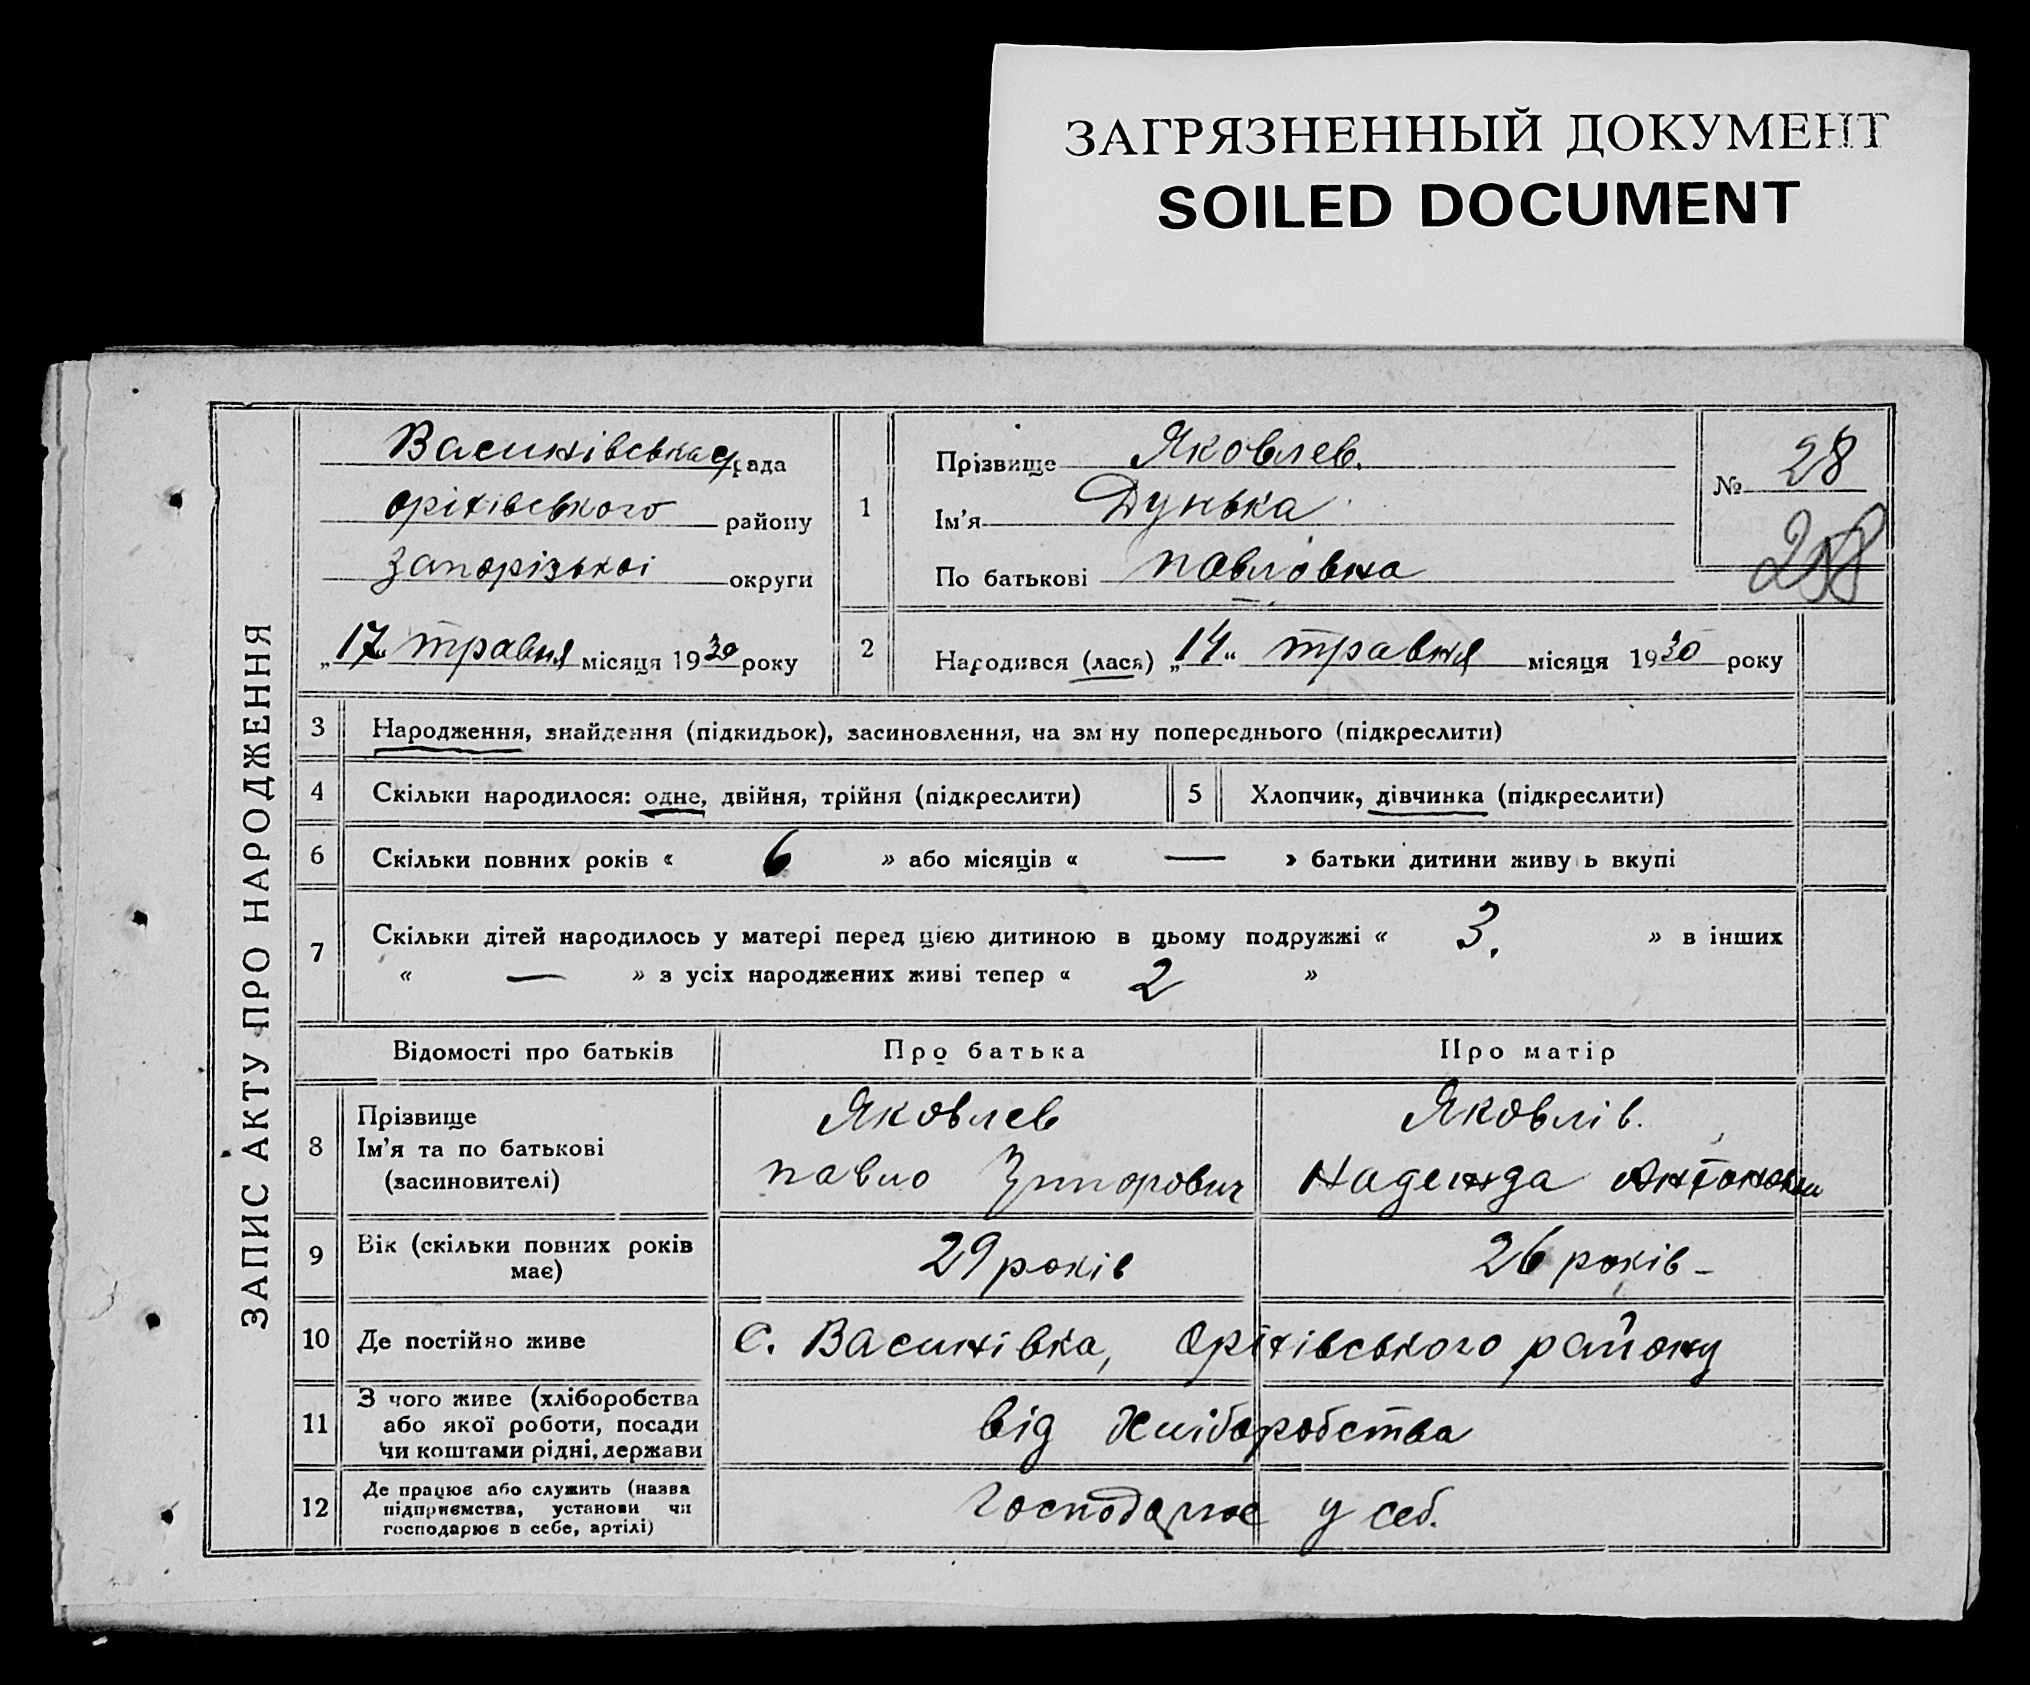 ЗАГРЯЗНЕННЫЙ ДОКУМЕНТ
SOILED DOCUMENT
ЗАПИС АКТУ ПРО НАРОДЖЕННЯ
Васинівська с/рада
оріхівського району
запорізької округи
„17“ травня місяця 1930 року
1
Прізвище Яковлев.
Ім’я Дунька
По батькові Павловна
№ 28
2
Народився (лася) „14“ травня місяця 1930 року
3 Народження, знайдення (підкидьок), засиновлення, на зм ну попереднього (підкреслити)
4 Скільки народилося: одне, двійня, трійня (підкреслити)
5 Хлопчик, дівчинка (підкреслити)
6 Скільки повних років « 6 » або місяців « — » батьки дитини живу ь вкупі
7 Скільки дітей народилось у матері перед цією дитиною в цьому подружжі « 3. » в інших
« — » з усіх народжених живі тепер « 2 »
Відомості про батьків Про батька Про матір
8 Прізвище
Ім’я та по батькові
(засиновителі)
Яковлев
Павло
Яковлів.
Надежда
9 Вік (скільки повних років
має)
29 років
26 років –
10 Де постійно живе
с. Васинівка, Оріхівського району
11 З чого живе (хліборобства
або якої роботи, посади
чи коштами рідні, держави
від хліборобства
12 Де працює або служить (назва
підприємства, установи чи
господарює в себе, артілі)
Господарює у себ.